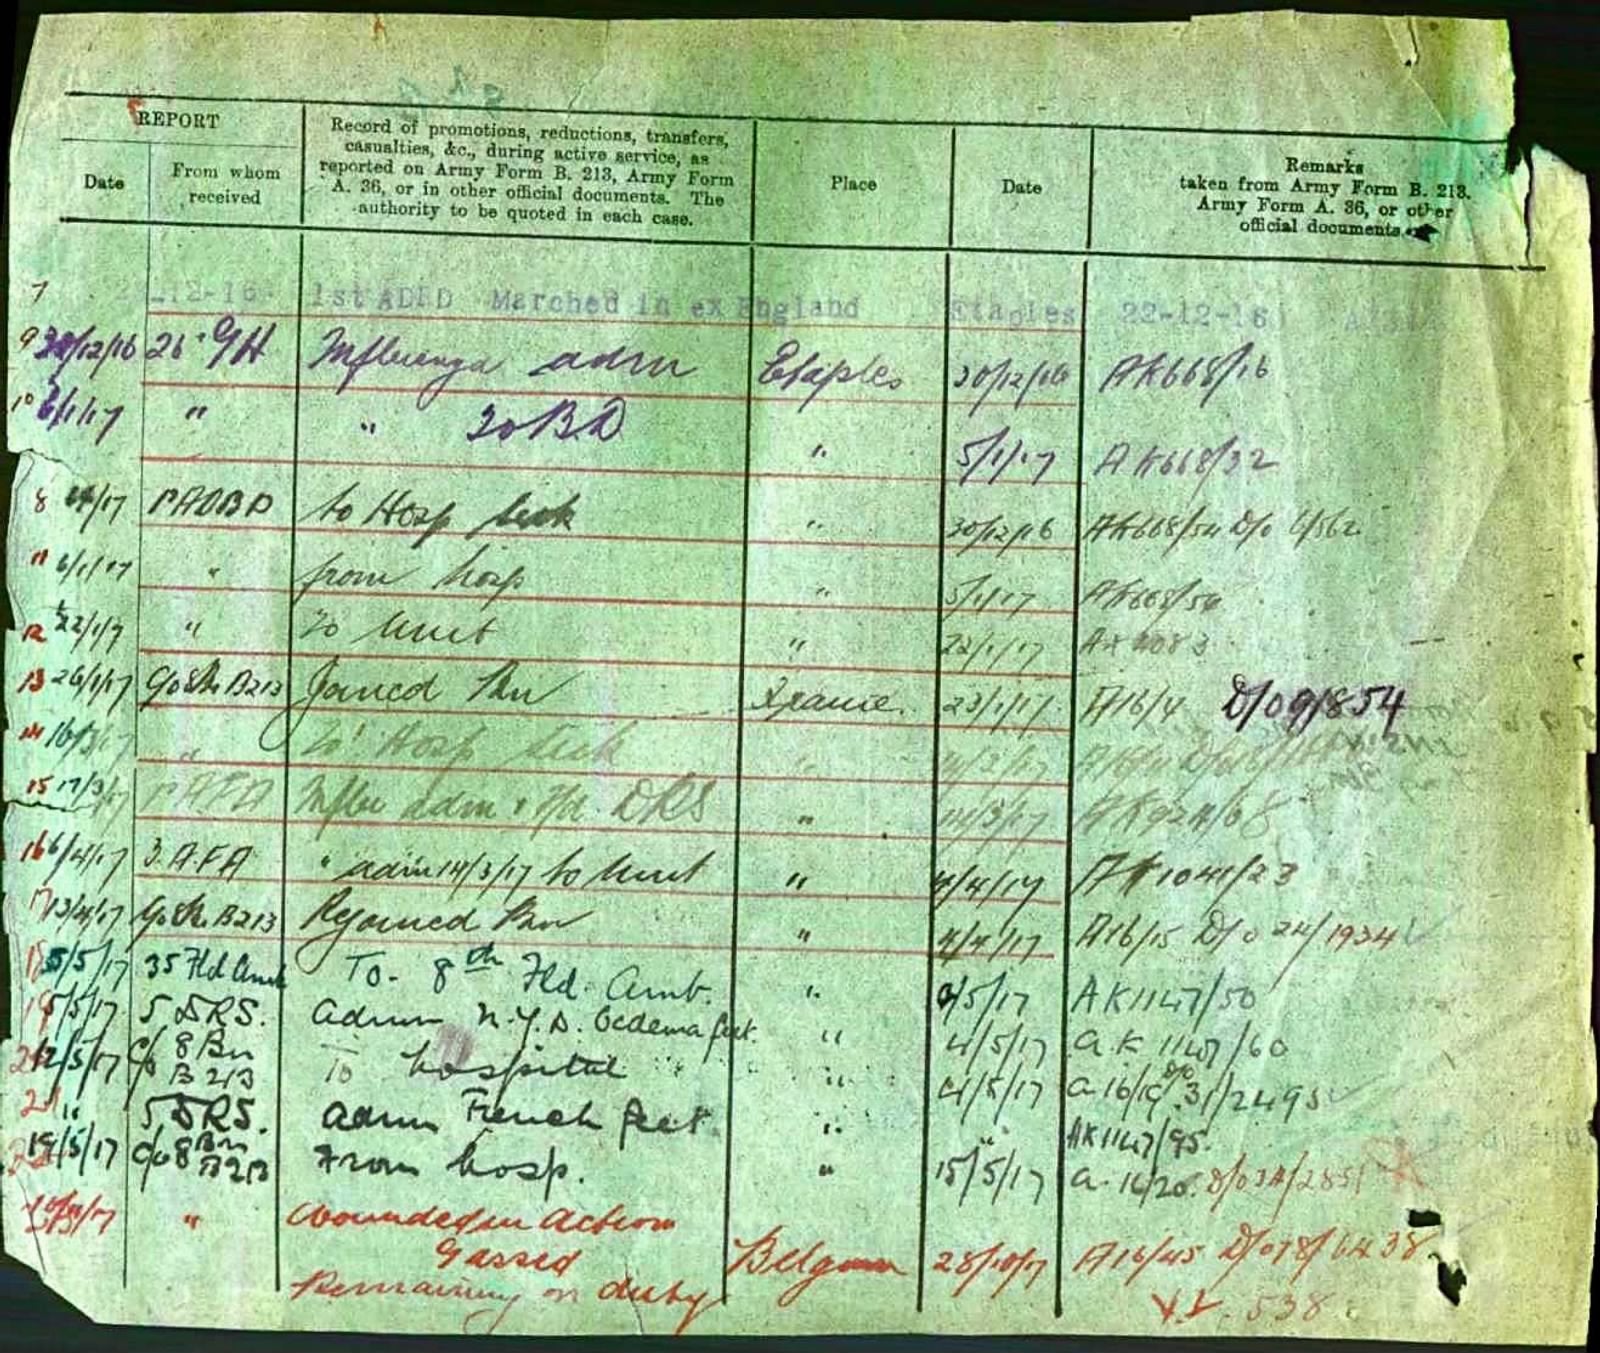 REPORT
Date
From whom
received
Record of promotions, reductions, transfers,
casualties, &c., during active service, as
reported on Army Form B. 213, Army Form
A. 36, or in other official documents. The
authority to be quoted in each case.
Place
Date
Remarks
taken from Army Form B. 213.
Army Form A. 36, or other
official documents.
7 -12-16. 1st ADBD Marched in ex England Etaples 22-12-16
9 /12/16 26 GH Influenza adm Etaples 30/12/16 AK668/16
10 6/1/17 " " To B.D " 5/1/17 AK668/32
8 /17 1 ADBD to Hosp sick " 30/12/16 AK668/54 D/o 6/562
11 6/1/17 " from hosp " 5/1/17 AK668/54
12 22/1/7 " To Unit " 22/1/17 4083
13 26/1/17 B213 Joined Bn France. 23/1/17 A16/4 D/o 9/854
14 16/3/17 " To Hosp sick " /3/17
15 17/3/17 Influ adm DRS " 14/3/17 AK924/68
16 6/4/17 3. AFA " adm 14/3/17 to Unit " 4/4/17 AK1041/23
17 13/4/17 B213 Rejoined Bn " 4/4/17 A16/15 D/o 24/1934
18 5/5/17 35 Fld Amb To - 8th Fld. Amb. " /5/17 AK1147/50
19 5/5/17 5 DRS. Admn N.Y.D. Oedema feet. " 4/5/17 A.K 1147/60
12/5/17 c/o 8 Bn
B 213 To hospital " 4/5/17 D/o 31/2495
21 " 5 DRS. Admn Trench feet. " " AK1147/95.
19/5/17 c/o 8 Bn
B213 From hosp. " 15/5/17 A. 16/20. D/o 34/2851
/17 " Wounded in Action
Gassed Belgium 28/10/17 A16/45 D/o 78/6438
Remaining on duty 538